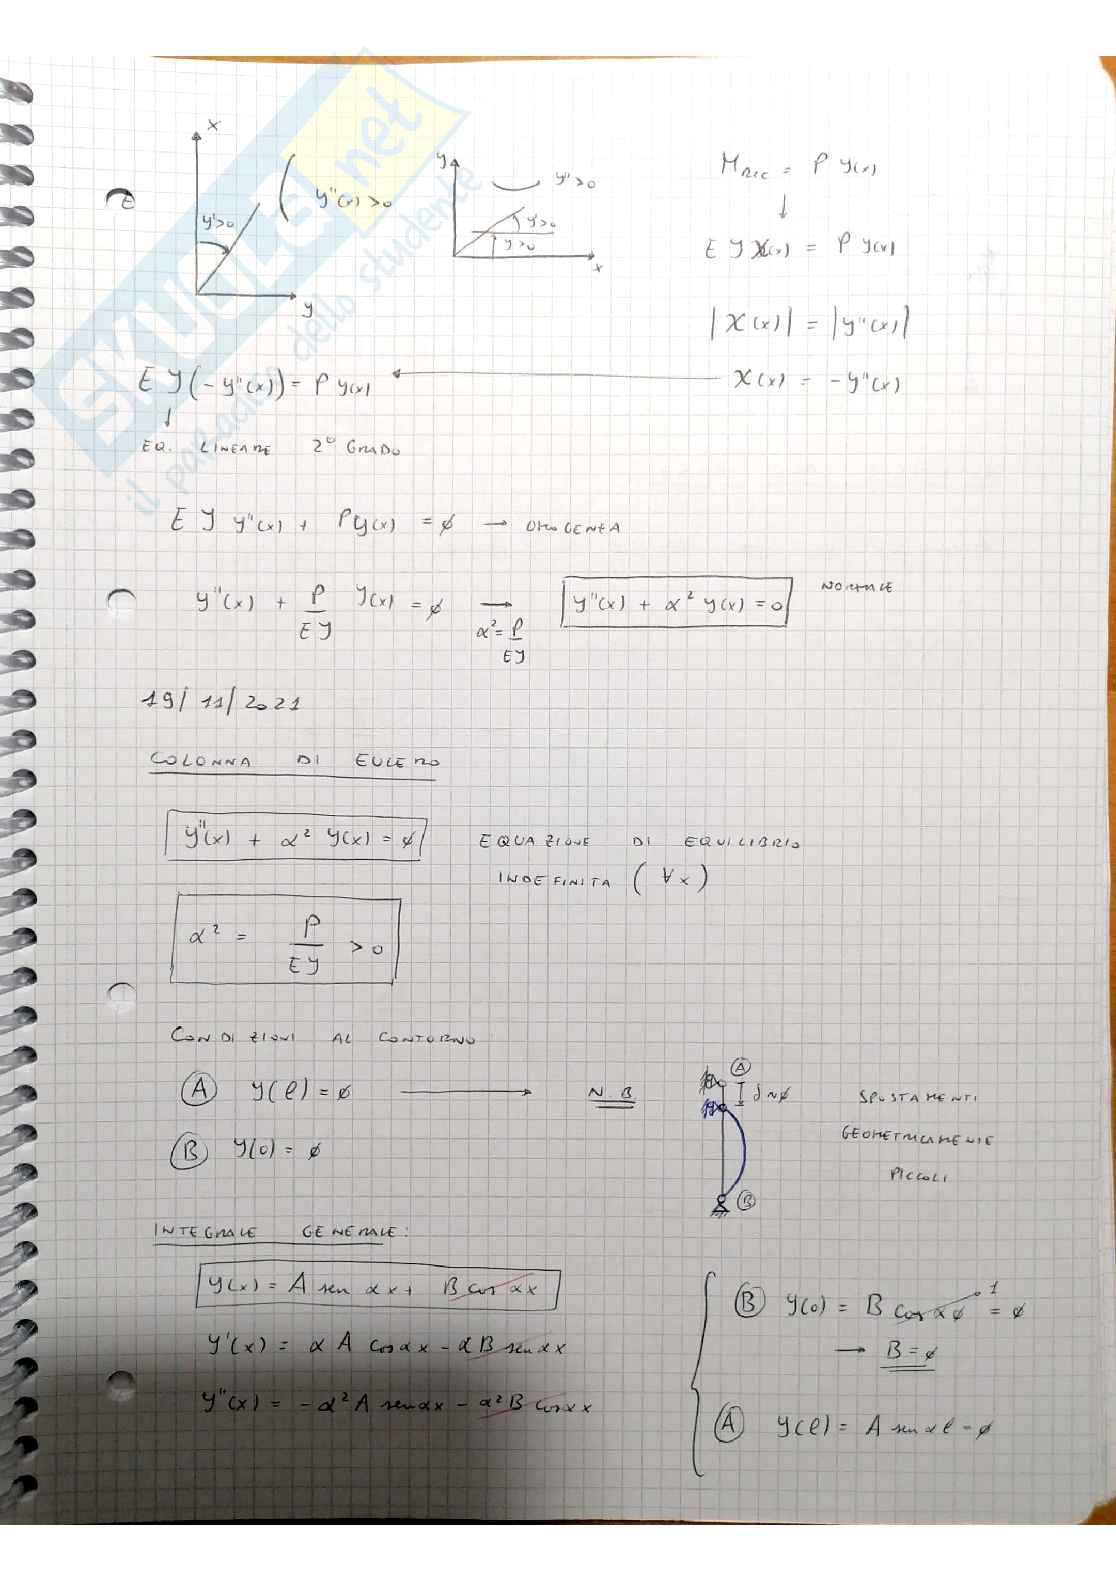 SKUOLA.net
il paradiso dello studente
x
y'>0
y''(x) > 0
y
y
y'' > 0
y'>0
y>0
x
M = P y(x)
↓
E J χ(x) = P y(x)
|χ(x)| = |y''(x)|
E J (- y''(x)) = P y(x) ← χ(x) = - y''(x)
↓
EQ. LINEARE 2° GRADO
E J y''(x) + P y(x) = ø → OMOGENEA
y''(x) + P/EJ y(x) = ø → y''(x) + α² y(x) = 0 NORMALE
α² = P/EJ
19/11/2021
COLONNA DI EULERO
y''(x) + α² y(x) = ø EQUAZIONE DI EQUILIBRIO
INDEFINITA (∀x)
α² = P/EJ > 0
CONDIZIONI AL CONTORNO
Ⓐ y(l) = ø → N.B Ⓐ δ ~ ø SPOSTAMENTI
GEOMETRICAMENTE
PICCOLI
Ⓑ y(0) = ø
Ⓑ
INTEGRALE GENERALE:
y(x) = A sen αx + B cos αx
y'(x) = α A cos αx - α B sen αx
y''(x) = - α² A sen αx - α² B cos αx
Ⓑ y(0) = B cos α ø 1 = ø
→ B = ø
Ⓐ y(l) = A sen αl = ø